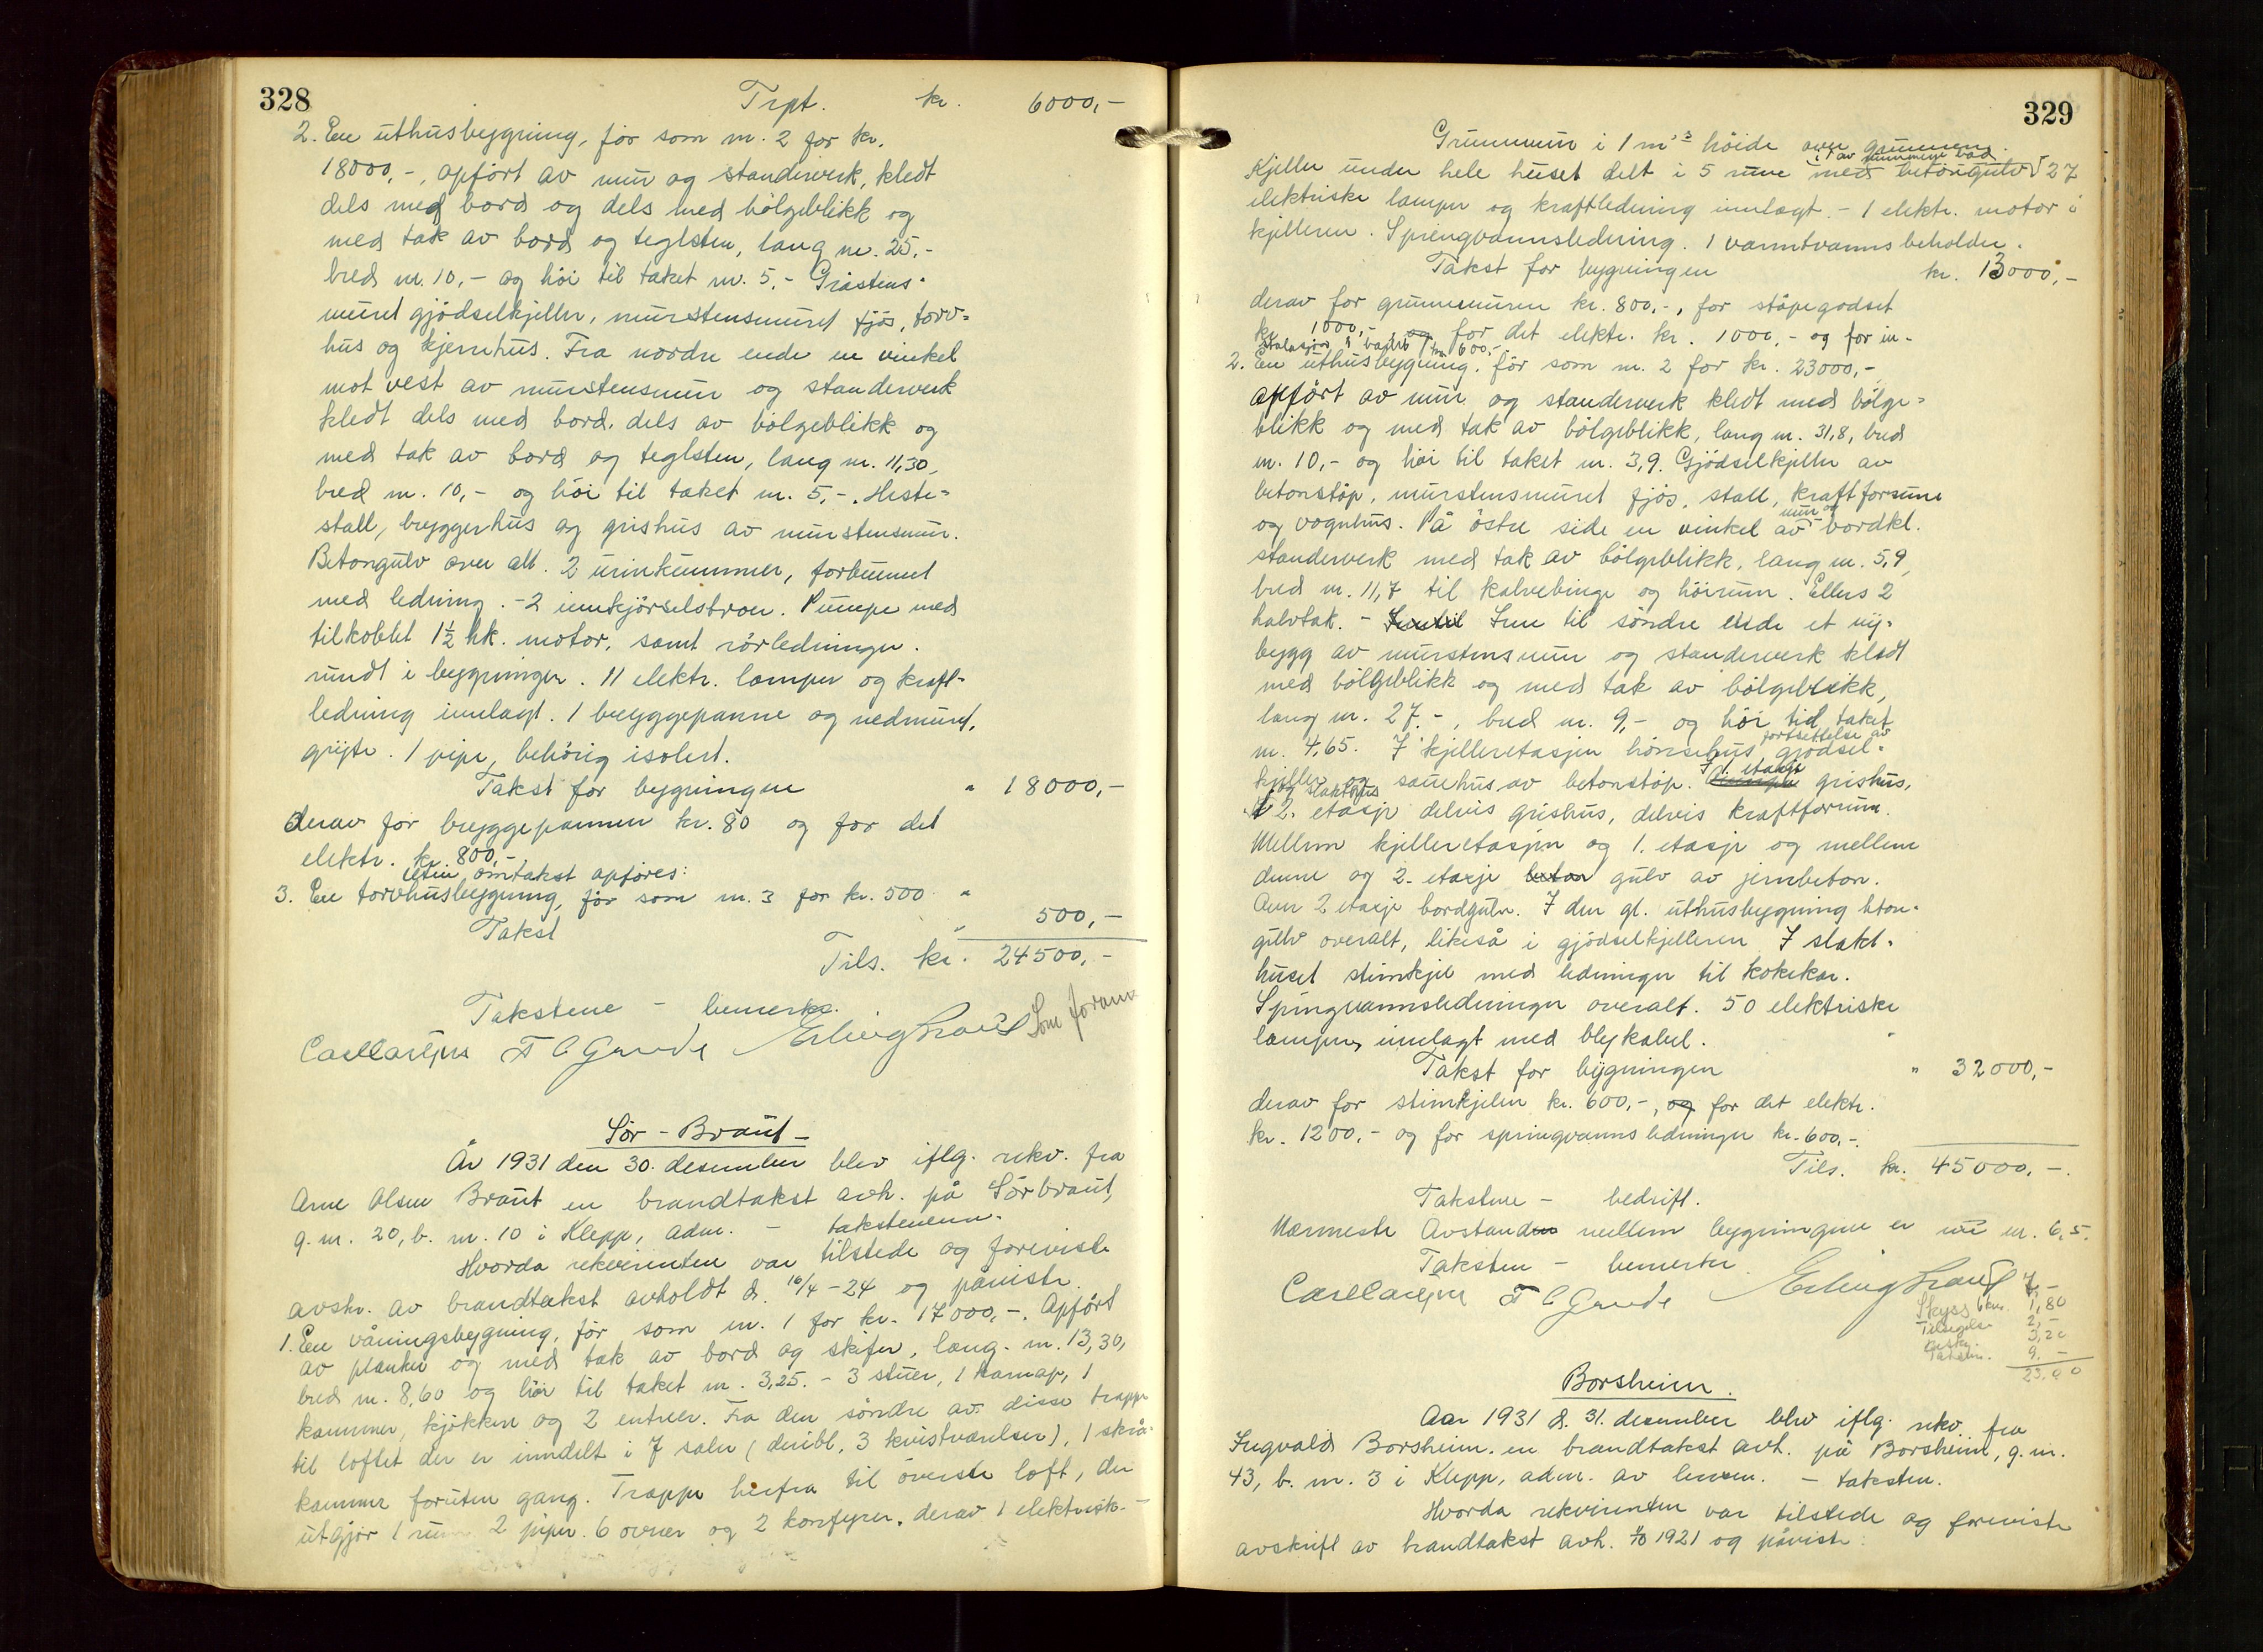 328
Trpt. kr. 6000,-
2. En uthusbygning, før som nr. 2 for kr.
18000,-, opført av mur og standerverk, kledt
dels med bord og dels med bølgeblikk og
med tak av bord og teglsten, lang m. 25,-
bred m. 10,- og høi til taket m. 5,- Gråstens-
muret gjødselkjeller, murstensmuret fjøs, torv-
hus og kjernehus. Fra nordre ende en vinkel
mot vest av murstensmur og standerverk
kledt dels med bord, dels av bølgeblikk og
med tak av bord og teglsten, lang m. 11,30,
bred m. 10,- og høi til taket m. 5,-. Heste-
stall, bryggerhus og grishus av murstensmur.
Betongulv over alt. 2 urinkummer, forbunnet
med ledning. - 2 innkjørselsbroer. Pumpe med
tilkoblet 1½ hk. motor, samt rørledninger
rundt i bygningen. 11 elektr. lamper og kraft-
ledning innlagt. 1 bryggepanne og nedmuret
gryte. 1 pipe, behørig isolert.
Takst for bygningen " 18000,-
derav for bryggepannen kr. 80 og for det
elektr. kr. 800,-
Uten omtakst opføres:
3. En torvhusbygning, før som nr. 3 for kr. 500 "
Takst " 500,-
Tils. kr. 24500,-
Takstene - bemerke.
Carl Carlsen F C Grude Erling Braut Som formann
Sør-Braut
År 1931 den 30. desember blev iflg. rekv. fra
Arne Olsen Braut en brandtakst avh. på Sørbraut,
g.nr. 20, b. nr. 10 i Klepp, adm. - takstmenn.
Hvorda rekvirenten var tilstede og foreviste
avskr. av brandtakst avholdt d. 16/4-24 og påviste
1. En våningsbygning, før som nr. 1 for kr. 17000,-. Opført
av planker og med tak av bord og skifer, lang m. 13,30,
bred m. 8,60 og høi til taket m. 3,25. - 3 stuer, 1 kamap, 1
kammer, kjøkken og 2 entreer. Fra den søndre av disse trappe
til loftet der er inndelt i 7 saler (deribl. 3 kvistværelser), 1 skrå-
kammer foruten gang. Trappe herfra til øverste loft, der
utgjør 1 rum 2 piper. 6 ovner og 2 komfyrer, derav 1 elektrisk. -
329
Grunnmur i 1 m's høide over grunnen.
i 1 av rummene bad
Kjeller under hele huset delt i 5 rum med betongulv 27
elektriske lamper og kraftledning innlagt. - 1 elektr. motor i
kjelleren. Springvannsledning. 1 varmtvannsbeholder.
Takst for bygningen kr. 13000,-
derav for grunnmuren kr. 800,-, for støpegodset
kr. 1000,-, og for det elektr. kr. 1000,- og for in-
stalasjon i badet kr. 600,-
2. En uthusbygning, før som nr. 2 for kr. 23000,-
opført av mur og standerverk kledt med bølge-
blikk og med tak av bølgeblikk, lang m. 31,8, bred
m. 10,- og høi til taket m. 3,9. Gjødselkjeller av
betonstøp, murstensmuret fjøs, stall, kraftforrum
og vognhus. På østre side en vinkel av mur og bordkl.
standerverk med tak av bølgeblikk, lang m. 5,9,
bred m. 11,7 til kalvebinge og høirum. Ellers 2
halvtak. - Inn til søndre ende et ny-
bygg av murstensmur og standerverk kledt
med bølgeblikk og med tak av bølgeblikk,
lang m. 27,-, bred m. 9,- og høi til taket
m. 4,65. I kjelleretasjen hønsehus fortsettelse av gjødsel-
kjeller og sauehus av betonstøp. I 1. etasje grishus,
og slakthus
I 2. etasje delvis grishus, delvis kraftforrum.
Mellem kjelleretasjen og 1. etasje og mellem
denne og 2. etasje beton gulv av jernbeton.
Over 2 etasje bordgulv. I den gl. uthusbygning beton-
gulv overalt, likeså i gjødselkjelleren I slakt-
huset stimkjel med ledninger til kokekar.
Springvannsledninger overalt. 50 elektriske
lamper, innlagt med blykabel.
Takst for bygningen " 32000,-
derav for stimkjelen kr. 600,-, og for det elektr.
kr. 1200,- og for springvannsledninger kr. 600,-.
Tils. kr. 45000,-.
Takstene - bedrift.
Nærmeste Avstanden mellem bygningene er m. 6,5.
Taksten - bemerke
Carl Carlsen F C Grude Erling Braut 7,-
Skyss 6 km. 1,80
Tilsigelse 2,-
avskr. 3,20
Takstm. 9,-
23,00
Borsheim.
Aar 1931 d. 31. desember blev iflg. rekv. fra
Ingvald Borsheim en brandtakst avh. på Borsheim, g.nr.
43, b. nr. 3 i Klepp, adm. av lensm. - taksten.
Hvorda rekvirenten var tilstede og foreviste
avskrift av brandtakst avh. 1/10 1921 og påviste: